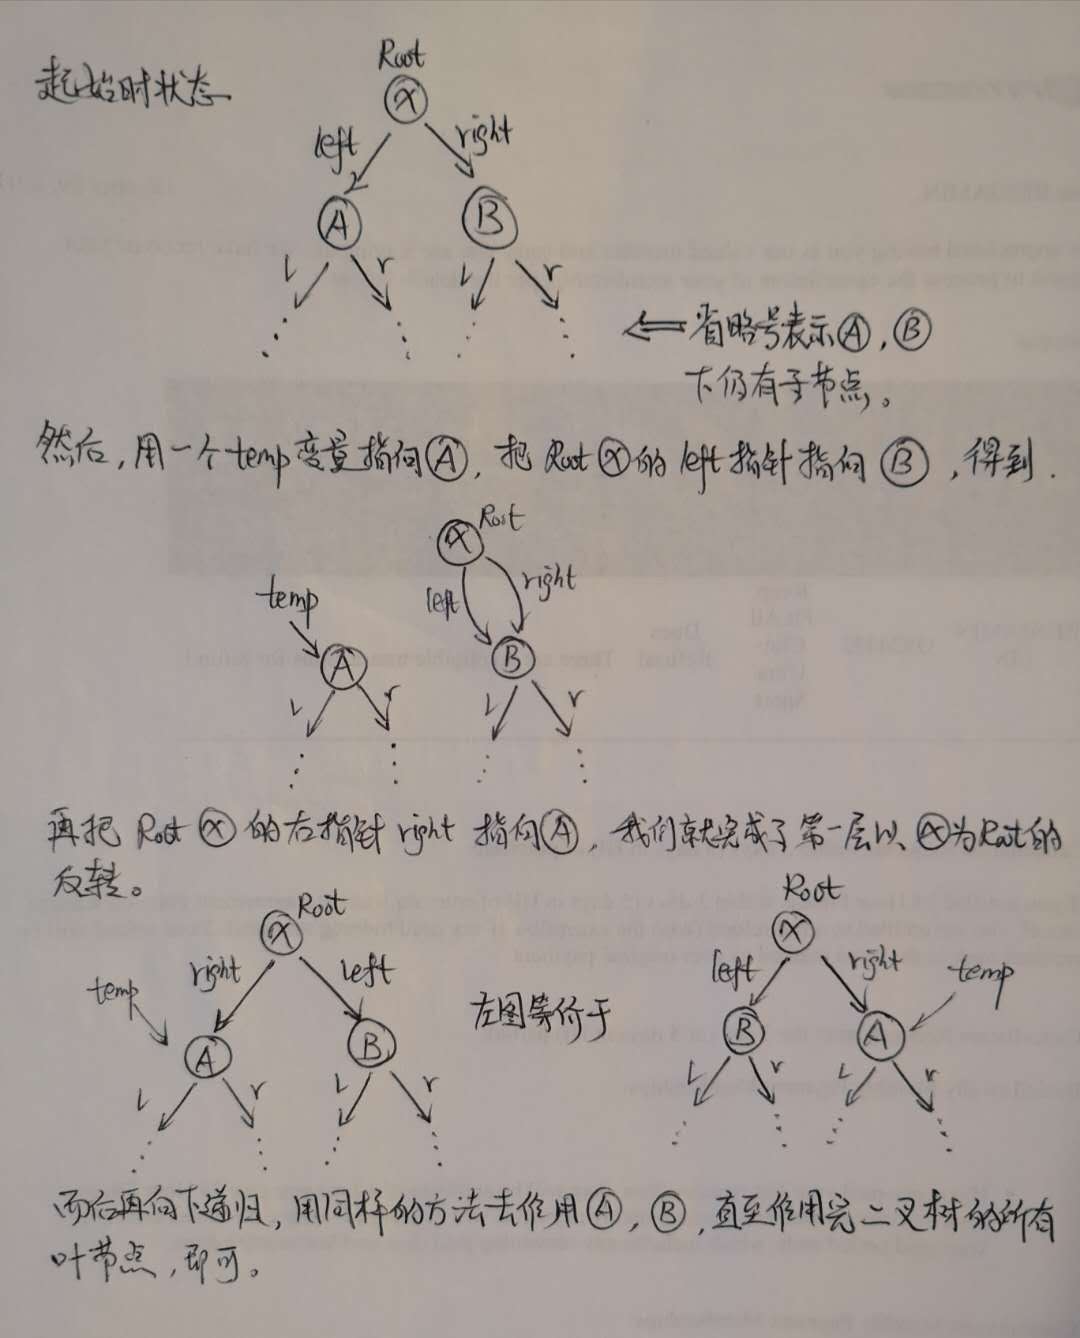 Root
起始时状态
X
left right
A B
L r L r
⇐ 省略号表示Ⓐ,Ⓑ
下仍有子节点。
然后,用一个temp变量指向Ⓐ,把Rootⓧ的left指针指向Ⓑ,得到.
X Root
temp left right
A B
L r L r
再把 Root ⓧ 的右指针 right 指向Ⓐ,我们就完成了第一层以ⓧ为Root的
反转。
Root
X
temp right left
A B
L r L r
左图等价于
Root
X
left right temp
B A
L r L r
而后再向下递归,用同样的方法去作用Ⓐ,Ⓑ,直至作用完二叉树的所有
叶节点,即可。